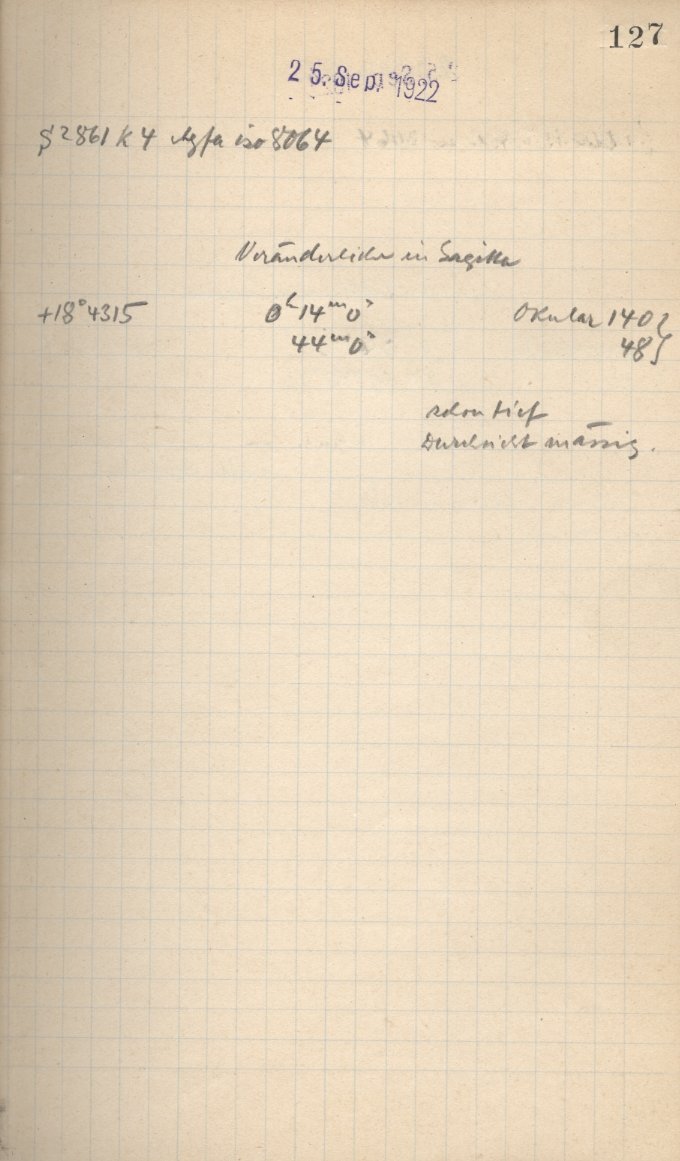 127
25. Sep. 1922
S 2861 K 4 Agfa iso 8064
Veränderliche in Sagitta
+18° 4315 0h 14m 0s Okular 140}
44m 0s 48}
schon tief
Durchsicht mässig.